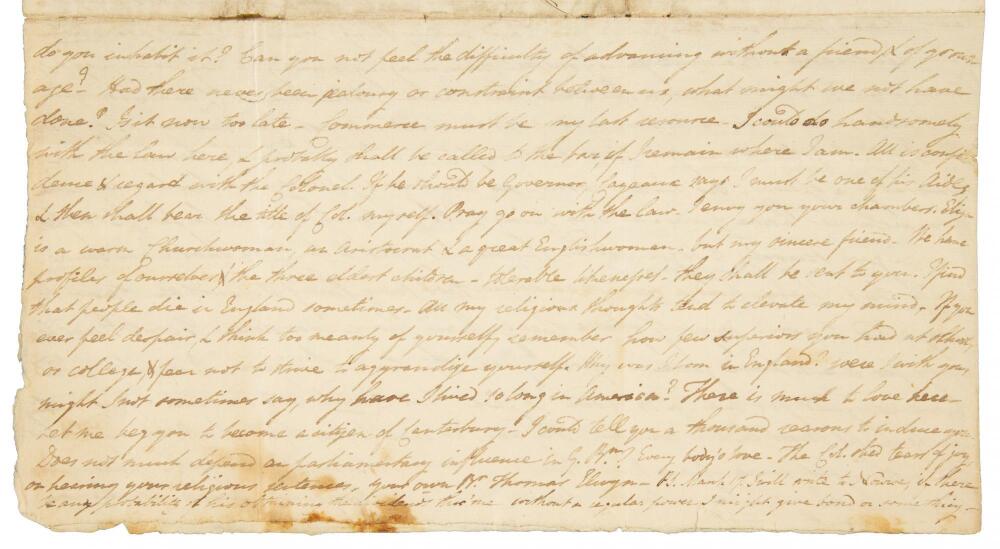 do you inhabit it? Can you not feel the difficulty of advancing without a friend, & of your
age? Had there never been jealousy or constraint between us, what might we not have
done? Is it now too late - Commerce must be my last resource - I could do handsomely
with the law here, & probably shall be called to the bar, if I remain where I am. All is confi-
dence & regard with the Colonel. If he should be Governor, says I must be one of his Aides,
& then shall bear the title of Col. myself. Pray go on with the law. I envy you your chambers. Eliza
is a warm Churchwoman, an Aristocrat & a great Englishwoman - but my sincere friend. We have
profiles of ourselves & the three eldest children - tolerable likenesses - they shall be sent to you. I find
that people die in England sometimes. All my religious thoughts tend to elevate my mind. If you
ever feel despair, & think too meanly of yourself, remember how few superiors you had at school
or college & fear not to strive to aggrandise yourself. Why was I born in England? were I with you
might I not sometimes say, why have I lived so long in America? There is much to love here -
Let me beg you to become a citizen of Canterbury - I could tell you a thousand reasons to induce you.
Does not much depend on parliamentary influence in G. Bn? Every body's love - The Col. shed tears of joy
on hearing your religious sentences, your own Br Thomas Elwyn - I will write to is there
any probability of his obtaining the without a regular power I might give bond or something -